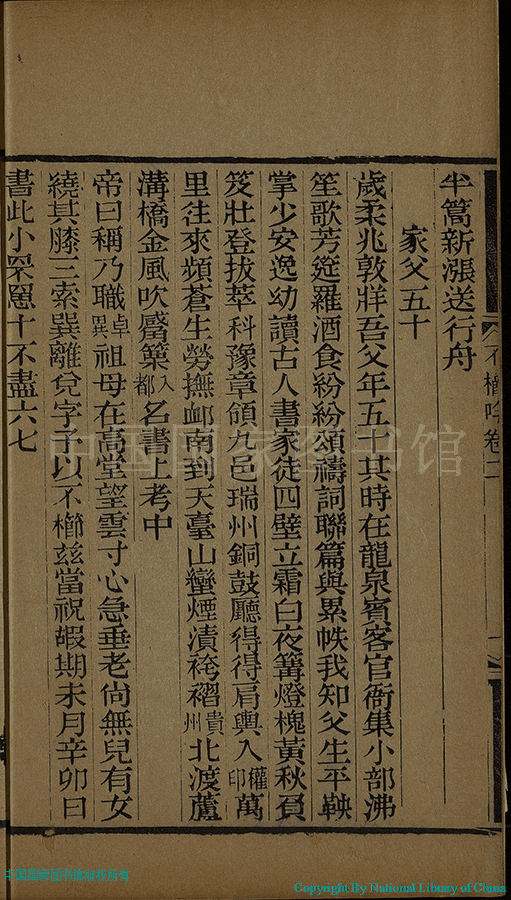 不櫛吟卷二
半篙新漲送行舟
家父五十
歲柔兆敦牂吾父年五十其時在龍泉賓客官衙集小部沸
笙歌芳筵羅酒食紛紛頌禱詞聯篇與累帙我知父生平鞅
掌少安逸幼讀古人書家徒四壁立霜白夜篝燈槐黃秋負
笈壯登拔萃科豫章領九邑瑞州銅鼓廳得得肩輿入權印萬
里往來頻蒼生勞撫䘏南到天臺山蠻煙漬袴褶貴州北渡蘆
溝橋金風吹觱篥入都名書上考中
帝曰稱乃職卓異祖母在高堂望雲寸心急垂老尚無兒有女
繞其膝三索巽離兌字予以不櫛茲當祝嘏期未月辛卯日
書此小罘罳十不盡六七
中国国家图书馆
Copyright By National Library of China